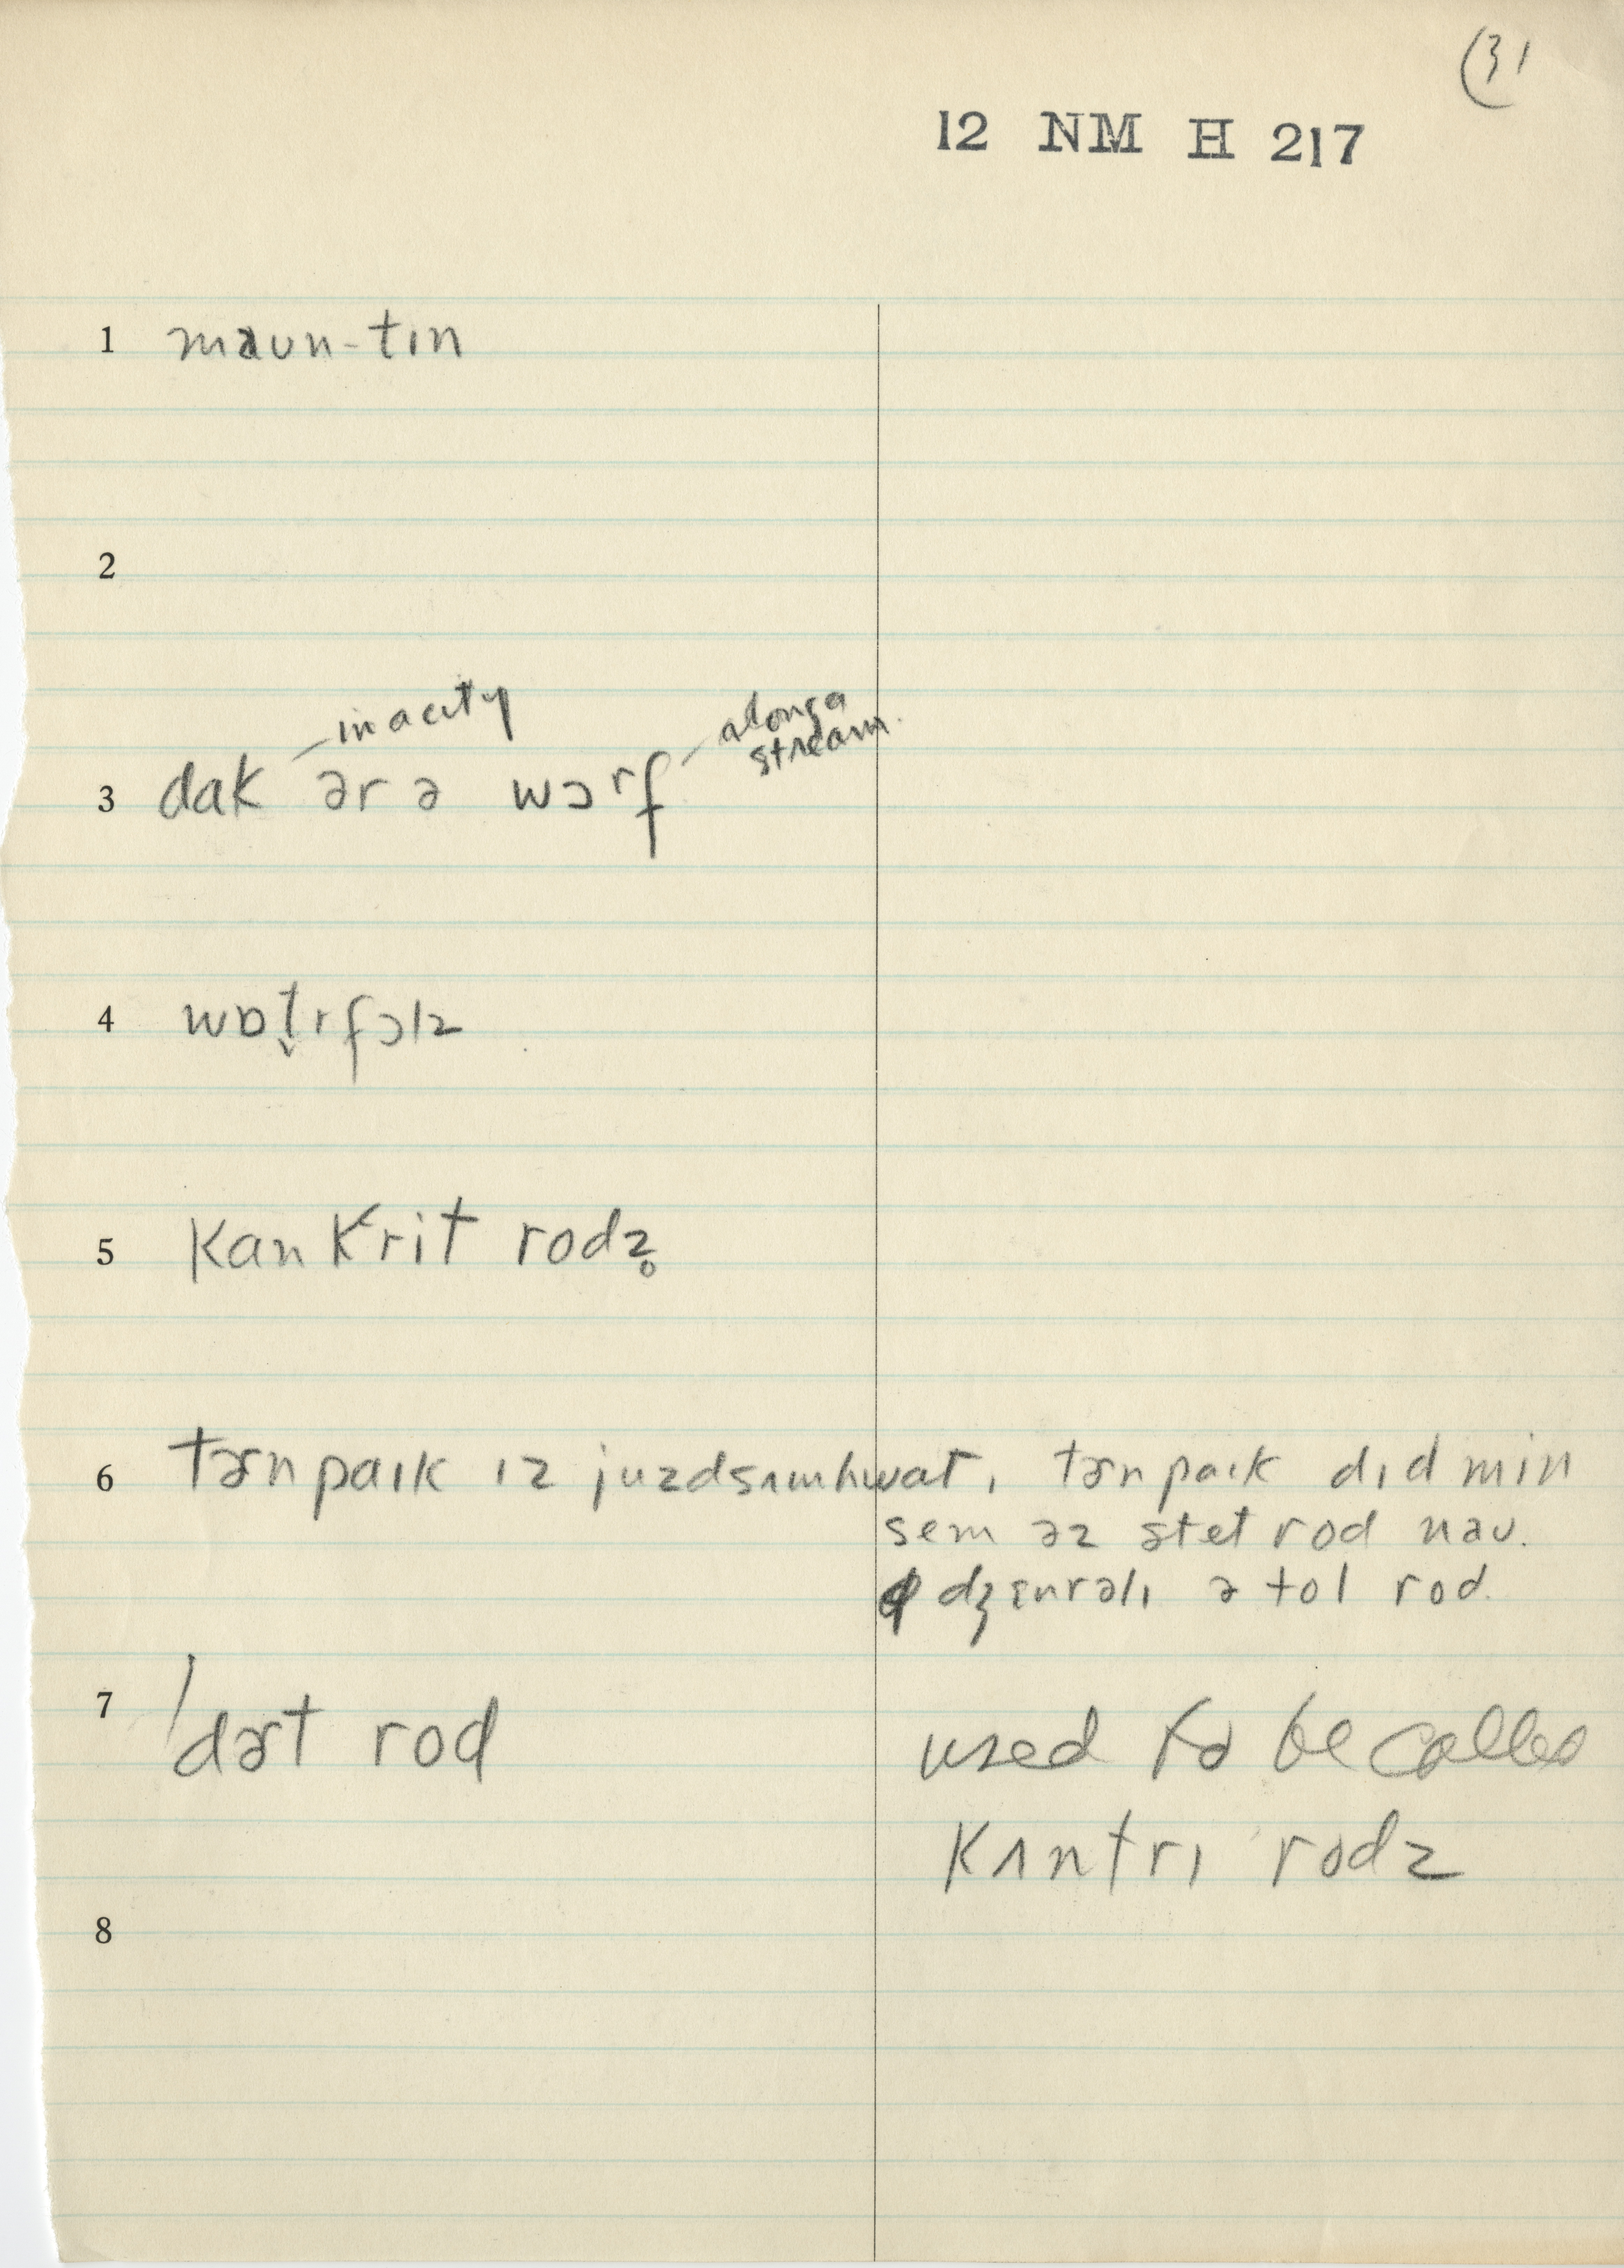 (31
12 NM H 217
1 maun-tɪn
2
in a city
along a
stream.
3 dak ər ə wɔrf
4 wɒt̬rfɔlz
5 kankrit rodz̥
6 tɚnpaɪk ɪz juzdsʌmhwat, tɚnpaɪk dɪd min
sem əz stet rod nau.
dʒɛnrəlɪ ə tol rod.
7 dɚt rod
used to be called
kʌntrɪ rodz
8